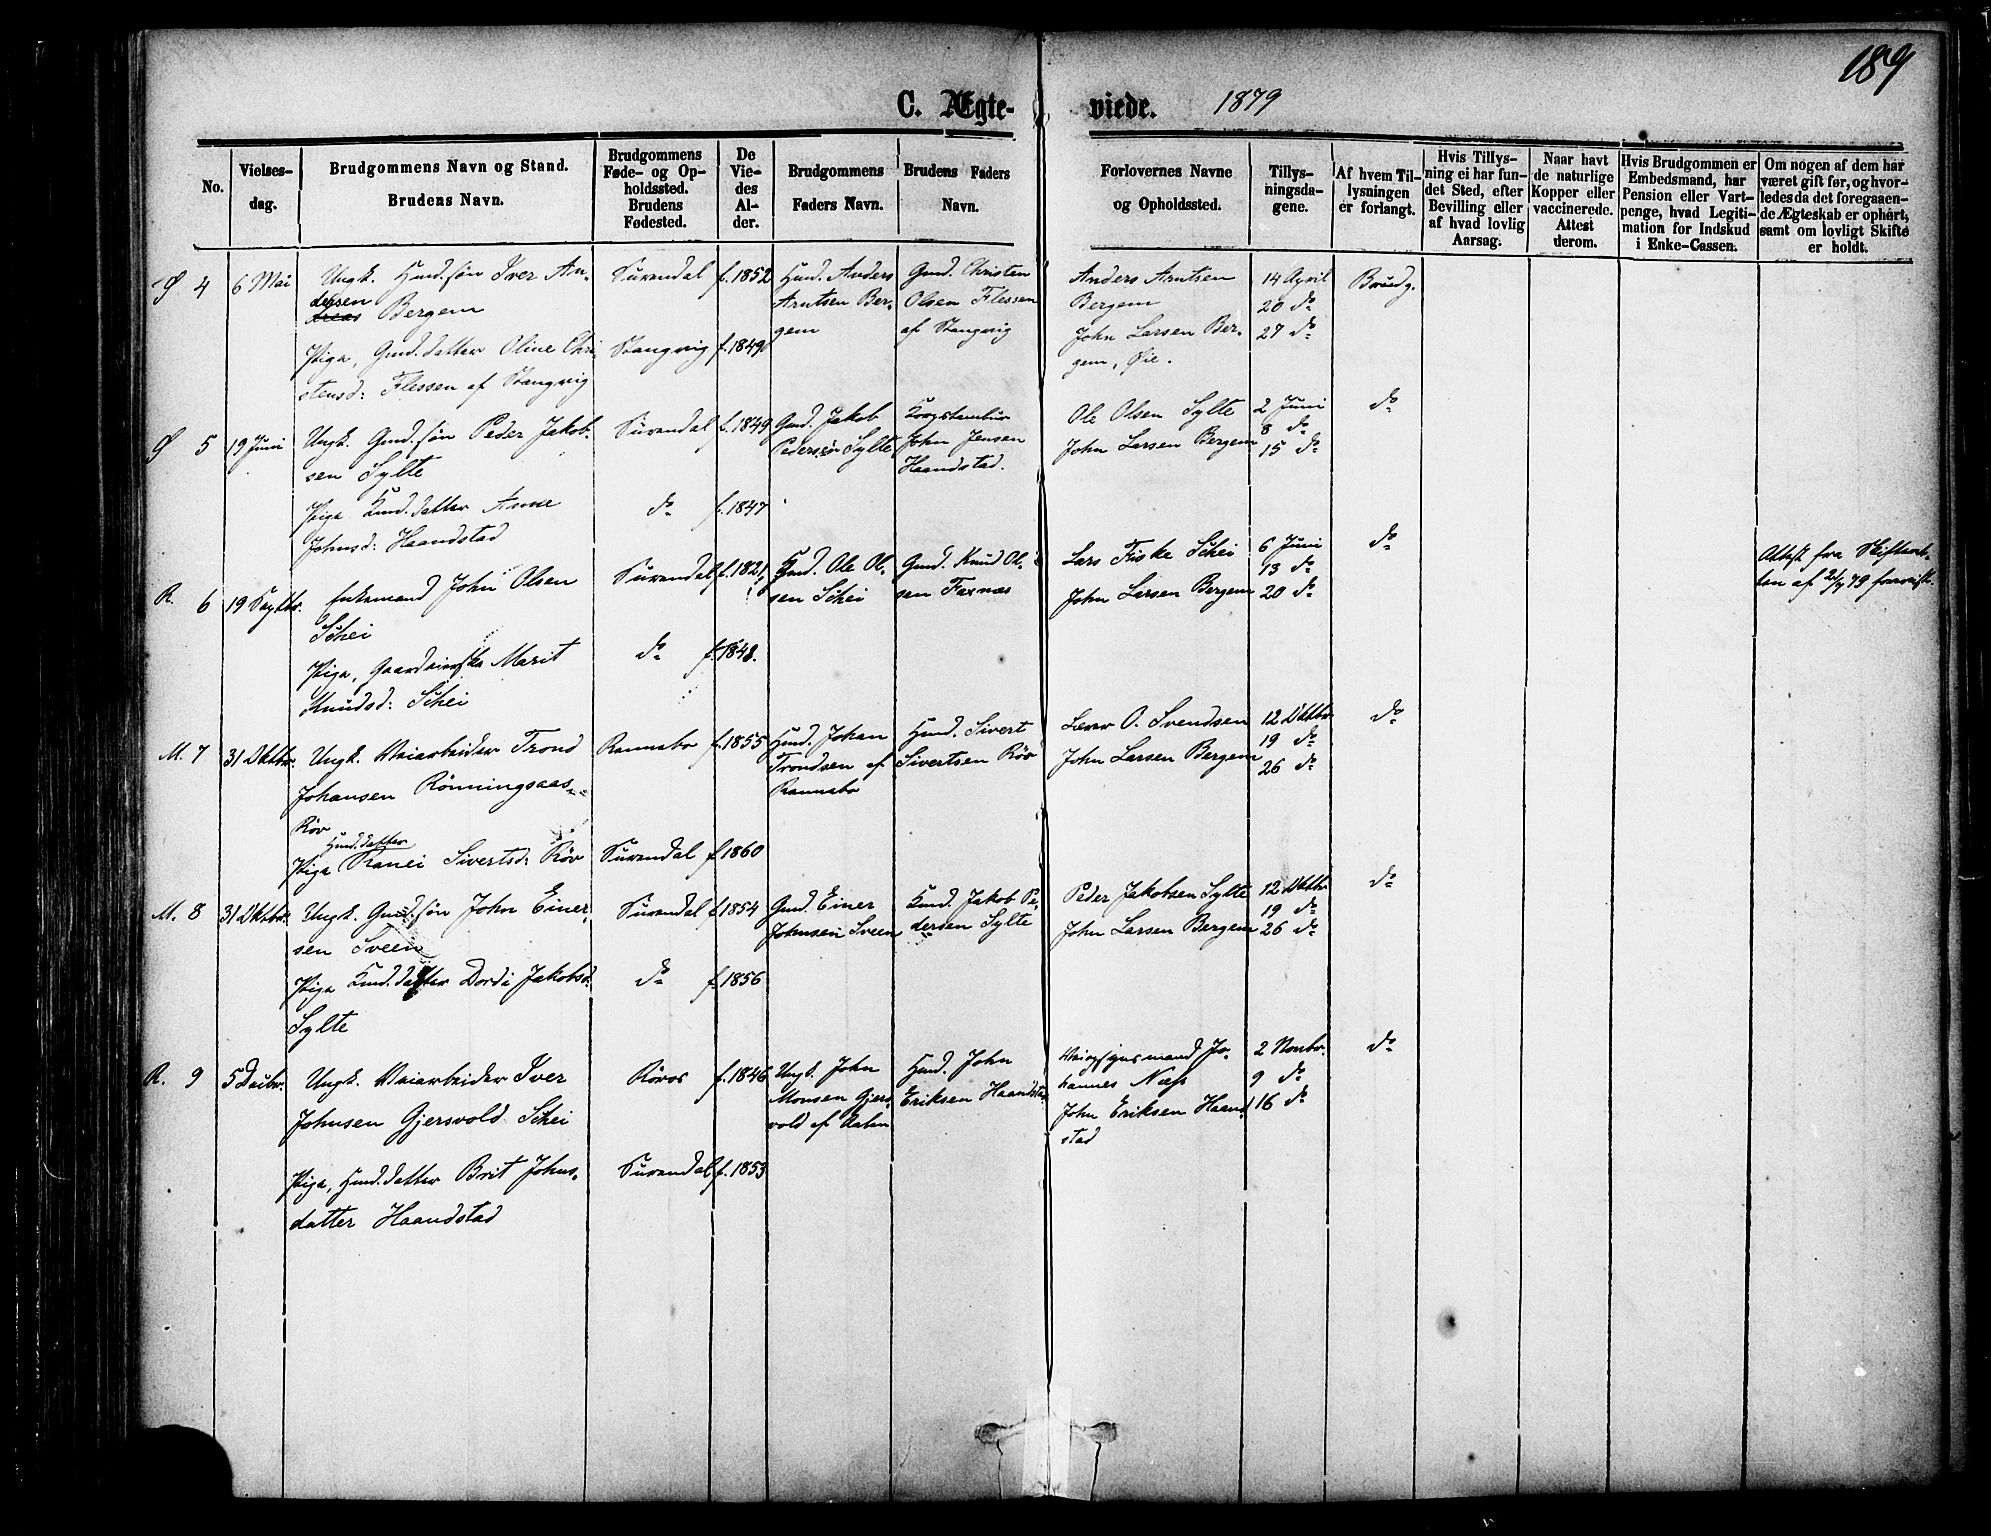 189
C. Ægte-
viede. 1879
No.
Vielses-
dag.
Brudgommens Navn og Stand.
Brudens Navn.
Brudgommens
Føde- og Op-
holdssted.
Brudens
Fødested.
De
Vie-
des
Al-
der.
Brudgommens
Faders Navn.
Brudens Faders
Navn.
Forlovernes Navne
og Opholdssted.
Tillys-
ningsda-
gene.
Af hvem Til-
lysningen
er forlangt.
Hvis Tillys-
ning ei har fun-
det Sted, efter
Bevilling eller
af hvad lovlig
Aarsag.
Naar havt
de naturlige
Kopper eller
vaccinerede.
Attest
derom.
Hvis Brudgommen er
Embedsmand, har
Pension eller Vart-
penge, hvad Legiti-
mation for Indskud
i Enke-Cassen.
Om nogen af dem har
været gift før, og hvor-
ledes da det foregaaen-
de Ægteskab er ophørt,
samt om lovligt Skifte
er holdt.
Ø 4
6 Mai
Ungk. Husd. søn Iver An-
dersen
Bergem
Pige, Gmd. datter Oline Chri-
stensd: Flessen af Stangvig
Surendal
Stangvig
f. 1852
f. 1849
Husd. Anders
Arntsen Ber-
gem
Gmd. Christen
Olsen Flessen
af Stangvig
Anders Arntsen
Bergem
John Larsen Ber-
gem, Øie.
14 April
20 do
27 do
Brudg.
Ø 5
19 Juni
Ungk. Gmd. søn Peder Jakob-
sen Sylte
Pige Husd. datter Anne
Johnsd: Haandstad
Surendal
do
f. 1849
f. 1847
Gmd. Jakob
Pedersen Sylte
John Jensen
Haandstad.
Ole Olsen Sylte
John Larsen Bergem
2 Juni
8 do
15 do
do
R. 6
19 Septbr.
Enkemand John Olsen
Schei
Pige, Marit
Knudsd: Schei
Surendal
do
f. 1821
f. 1848.
Gmd. Ole Ol-
sen Schei
Gmd. Knud Ol-
sen Faxnæs
Lars Fiske Schei
John Larsen Bergem
6 Juni
13 do
20 do
do
Attest fra Skifteret-
ten af 2/7 79 forevist.
M. 7
31 Oktbr.
Ungk. Veiarbeider Trond
Johansen Rönningsaas
Röv
Husd. datter
Pige Ranei Sivertsd: Röv
Rennebo
Surendal
f. 1855
f. 1860
Husd. Johan
Trondsen af
Rennebo
Husd. Sivert
Sivertsen Röv
Lærer O. Svendsen
John Larsen Bergem
12 Oktbr.
19 do
26 do
do
M. 8
31 Oktbr.
Ungk. Gmd. søn John Einer-
sen Sveen
Pige Husd. datter Dordi Jakobsd.
Sylte
Surendal
do
f. 1854
f. 1856
Gmd. Einer
Johnsen Sveen
Husd. Jakob Pe-
dersen Sylte
Peder Jakobsen Sylte
John Larsen Bergem
12 Oktbr.
19 do
26 do
do
R. 9
5 Decbr.
Ungk. Veiarbeider Iver
Johnsen Gjersvold Schei
Pige, Husd. datter Brit Johns-
datter Haandstad
Röros
Surendal
f. 1846
f. 1853
Ungk. John
Monsen Gjers-
vold af Aalen
Husd. John
Eriksen Haandstad
Veiopsynsmand Jo-
hannes Næss
John Eriksen Haand-
stad
2 Novbr.
9 do
16 do
do